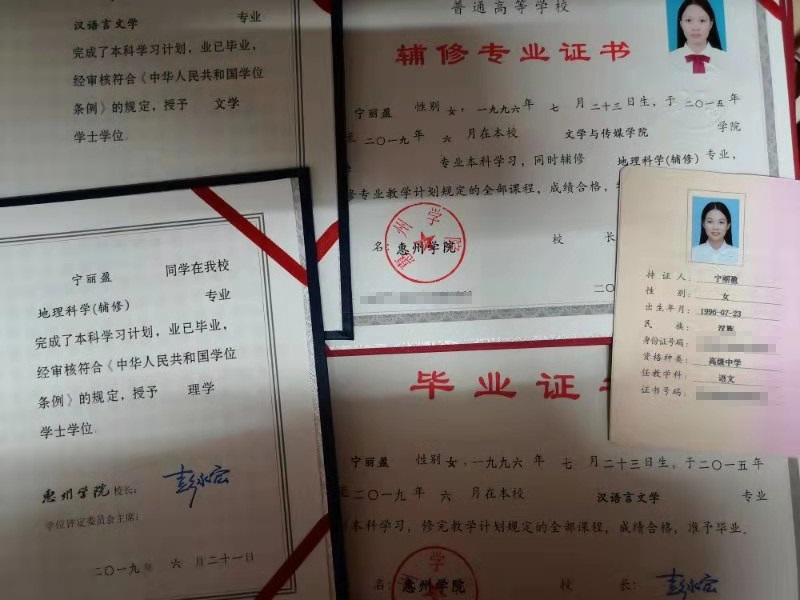 汉语言文学 专业
完成了本科学习计划，业已毕业，
经审核符合《中华人民共和国学位
条例》的规定，授予 文学
学士学位
普通高等学校
辅修专业证书
宁丽盈 性别 女，一九九六 年 七 月 二十三 日生，于 二〇一五 年
至 二〇一九 年 六 月在本校 文学与传媒学院 学院
专业本科学习，同时辅修 地理科学(辅修) 专业，
修专业教学计划规定的全部课程，成绩合格，
惠州学院
名：惠州学院 校 长
二〇
宁丽盈 同学在我校
地理科学(辅修) 专业
完成了本科学习计划，业已毕业，
经审核符合《中华人民共和国学位
条例》的规定，授予 理学
学士学位
惠州学院 校长： 彭永宏
学位评定委员会主席：
二〇一九年 六 月二十一日
持证人： 宁丽盈
性 别： 女
出生年月： 1996-07-23
民 族： 汉族
身份证号码：
资格种类： 高级中学
任教学科： 语文
证书号码：
毕业证书
宁丽盈 性别 女，一九九六 年 七 月 二十三 日生，于 二〇一五 年
至 二〇一九 年 六 月在本校 汉语言文学 专业
本科学习，修完教学计划规定的全部课程，成绩合格，准予毕业。
学
名：惠州学院 校 长： 彭永宏